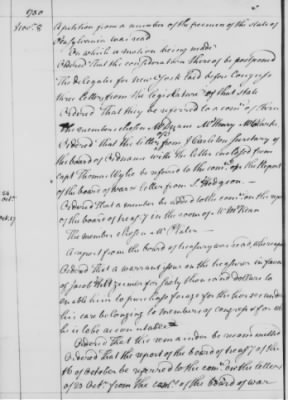 1780
Novr. 8 A petition from a number of the freemen of the State of
Pensylvania was read
On which a motion being made
Ordered that the consideration thereof be postponed
The delegates for New York laid before Congress
three letters from the legislature of that State
Ordered that they be referred to a comee of three
The members chosen Mr Duane Mr Henry
Ordered that the letter of J Carleton Secretary of
the board of Ordnance with the letter enclosed from
capt Thomas Wylie be referred to the comee on the Report
of the board of war & letter from J. Hodgson
Ordered that a member be added to the comee on the report
of the board of treasy in the room of Mr McKean
The member chosen Mr Plater
A report from the board of treasury was read, whereupon
Ordered That a warrant issue on the treasurer in favour
of Jacob Hiltzeimer for sixty thousand dollars to
enable him to purchase forage for the horses under
his care belonging to members of congress for wh
he is to be accountable
Ordered That the remainder be recommitted
Ordered that the report of the board of treasy of the
16 of October be referred to the comee on the letters
of 23 Octr from the comrs of the board of war
26
Octr.